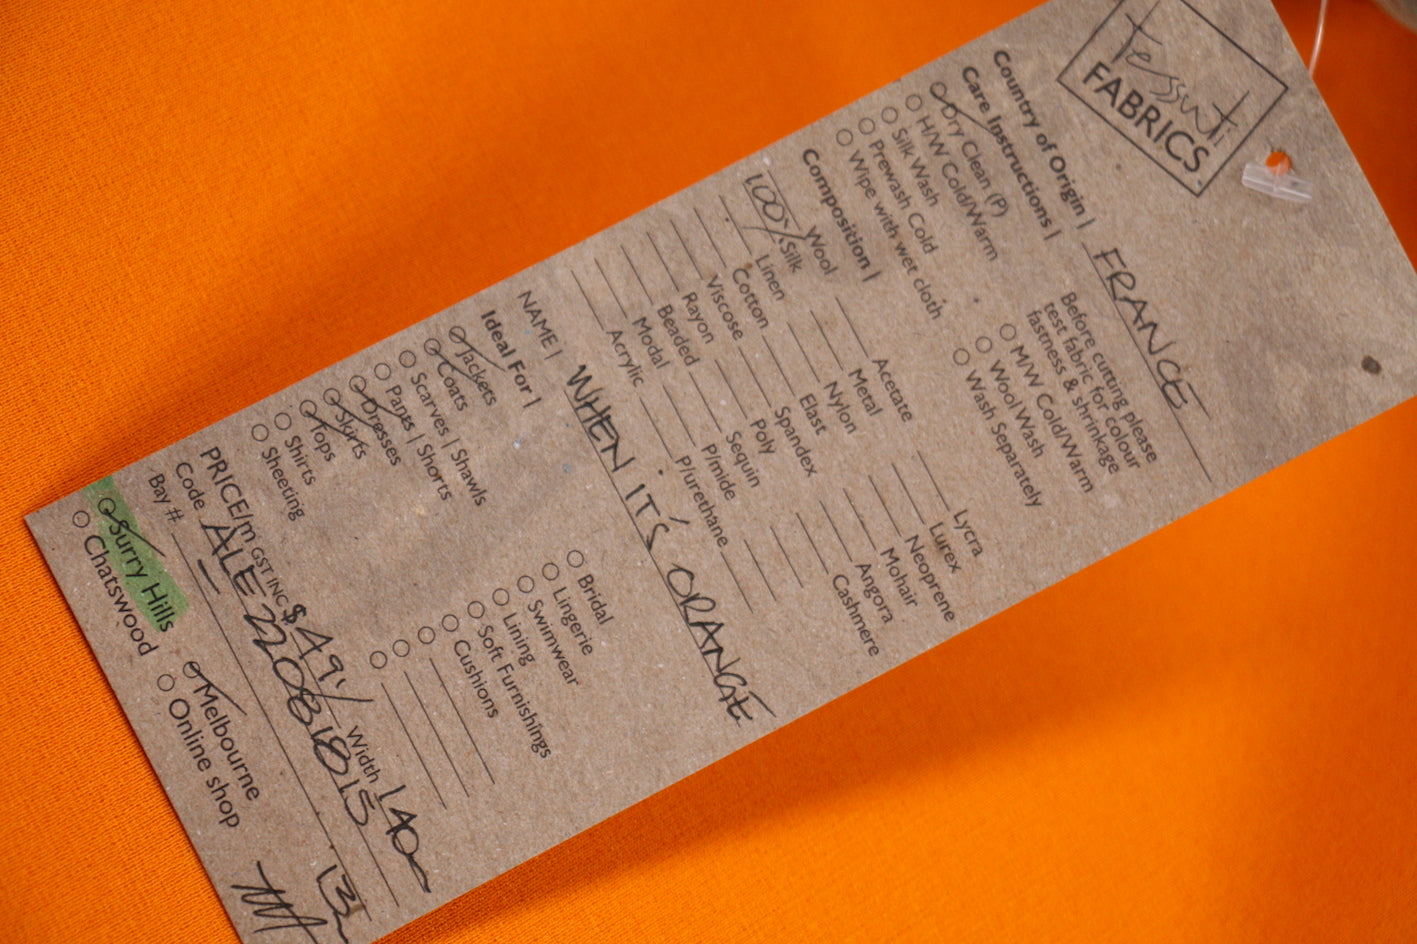 Tessuti
FABRICS
Country of Origin | FRANCE
Care Instructions |
Dry Clean (P)
H/W Cold/Warm
Silk Wash
Prewash Cold
Wipe with wet cloth
Before cutting please
test fabric for colour
fastness & shrinkage
M/W Cold/Warm
Wool Wash
Wash Separately
Composition |
Wool Acetate Lycra
100% Silk Metal Lurex
Linen Nylon Neoprene
Cotton Elast Mohair
Viscose Spandex Angora
Rayon Poly Cashmere
Beaded Sequin
Modal P/mide
Acrylic P/urethane
NAME | WHEN IT'S ORANGE
Ideal For |
Jackets Bridal
Coats Lingerie
Scarves | Shawls Swimwear
Pants | Shorts Lining
Dresses Soft Furnishings
Skirts Cushions
Tops
Shirts
Sheeting
PRICE/m GST INC $49 Width 140
Code ALE22081815
Bay # 13
Surry Hills Melbourne
Chatswood Online shop